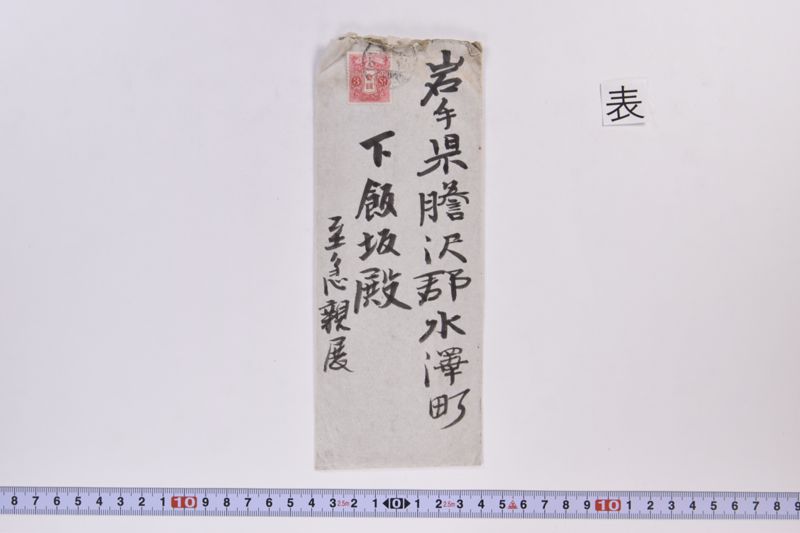 表
岩手県膽沢郡水澤町
下飯坂殿
至急親展
8 7 6 5 4 3 2 1 10 9 8 7 6 5 4 3 2.5m 2 1 0 1 2 2.5m 3 4 5 6 7 8 9 10 1 2 3 4 5 6 7 8 9